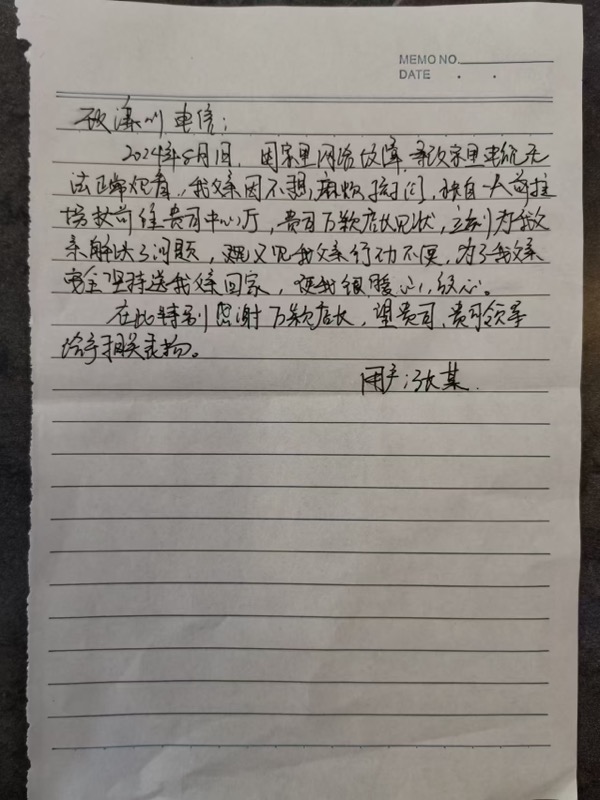 MEMO NO.
DATE . .
致溧川电信：
2024年8月1日，因家里网络故障导致家里电视无
法正常观看，我父亲因不想麻烦我们，独自一人前拄
拐杖前往贵司中心厅，贵司万歆店长见状，立刻为我父
亲解决了问题，现又见我父亲行动不便，为了我父亲
安全坚持送我父亲回家，使我很暖心，放心。
在此特别感谢万歆店长，望贵司、贵司领导
给予相关表扬。
用户：张某